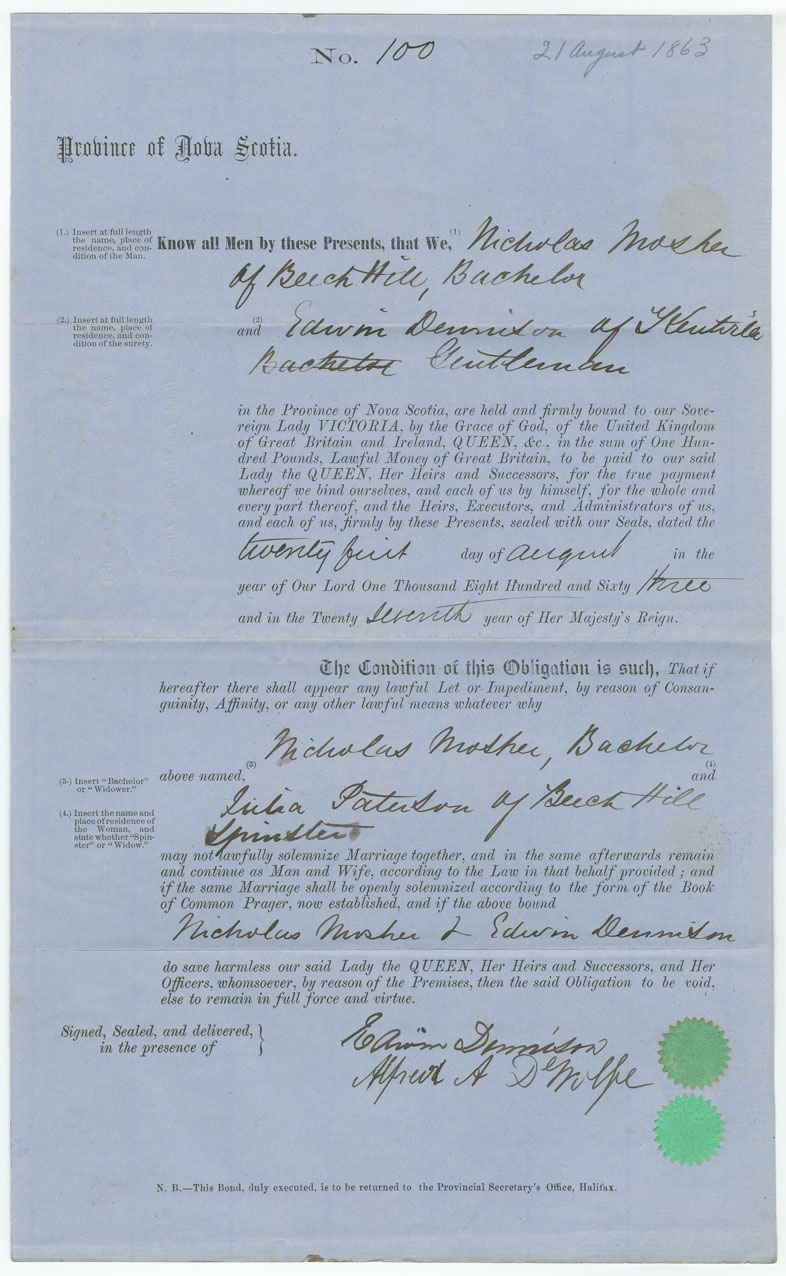 No. 100
21 August 1863
Province of Nova Scotia.
(1.) Insert at full length
the name, place of
residence, and con-
dition of the Man.
Know all Men by these Presents, that We, (1) Nicholas Mosher
of Beech Hill, Bachelor
(2.) Insert at full length
the name, place of
residence, and con-
dition of the surety.
(2)
and Edwin Dennison of Kentville
Bachelor Gentleman
in the Province of Nova Scotia, are held and firmly bound to our Sove-
reign Lady VICTORIA, by the Grace of God, of the United Kingdom
of Great Britain and Ireland, QUEEN, &c., in the sum of One Hun-
dred Pounds, Lawful Money of Great Britain, to be paid to our said
Lady the QUEEN, Her Heirs and Successors, for the true payment
whereof we bind ourselves, and each of us by himself, for the whole and
every part thereof, and the Heirs, Executors, and Administrators of us,
and each of us, firmly by these Presents, sealed with our Seals, dated the
twenty first day of august in the
year of Our Lord One Thousand Eight Hundred and Sixty three
and in the Twenty Seventh year of Her Majesty's Reign.
The Condition of this Obligation is such, That if
hereafter there shall appear any lawful Let or Impediment, by reason of Consan-
guinity, Affinity, or any other lawful means whatever why
Nicholas Mosher, Bachelor
(3-) Insert "Bachelor"
or "Widower."
above named, (3) and (4)
(4.) Insert the name and
place of residence of
the Woman, and
state whether "Spin-
ster" or "Widow."
Julia Paterson of Beech Hill
Spinster
may not lawfully solemnize Marriage together, and in the same afterwards remain
and continue as Man and Wife, according to the Law in that behalf provided; and
if the same Marriage shall be openly solemnized according to the form of the Book
of Common Prager, now established, and if the above bound
Nicholas Mosher & Edwin Dennison
do save harmless our said Lady the QUEEN, Her Heirs and Successors, and Her
Officers, whomsoever, by reason of the Premises, then the said Obligation to be void,
else to remain in full force and virtue.
Signed, Sealed, and delivered,
in the presence of
Edwin Dennison
Alfred A DeWolfe
N. B.—This Bond, duly executed, is to be returned to the Provincial Secretary's Office, Halifax.